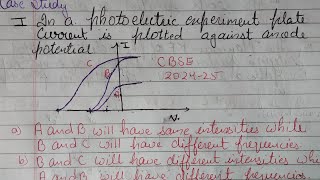 Case Study
I In a photoelectric experiment plate
Current is plotted against anode
potential
I
C
B
A
CBSE
2024-25
V
a) A and B will have same intensities while
B and C will have different frequencies.
b) B and C will have different intensities while
A and B will have different frequencies